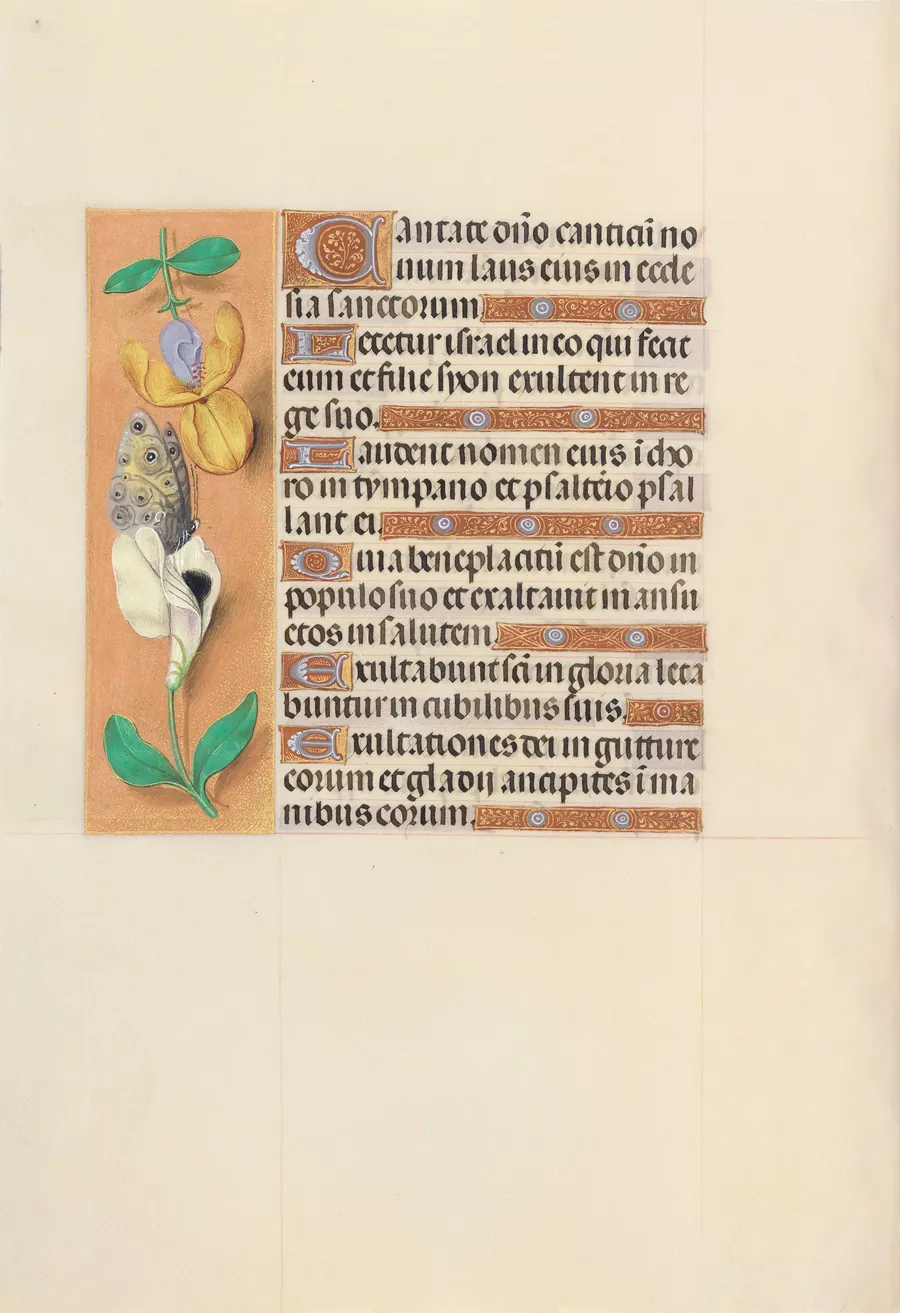 Cantate dño canticũ no
uum laus eius in eccle
sia sanctorum
Letetur israel in eo qui fecit
eum et filie syon exultent in re
ge suo.
Laudent nomen eius ĩ cho
ro in tympano et psalterio psal
lant ei.
Quia beneplacitũ est dño in
populo suo et exaltauit mansu
etos in salutem.
Exultabunt sc̃i in gloria leta
buntur in cubilibus suis.
Exultationes dei in gutture
eorum et gladij ancipites ĩ ma
nibus eorum.